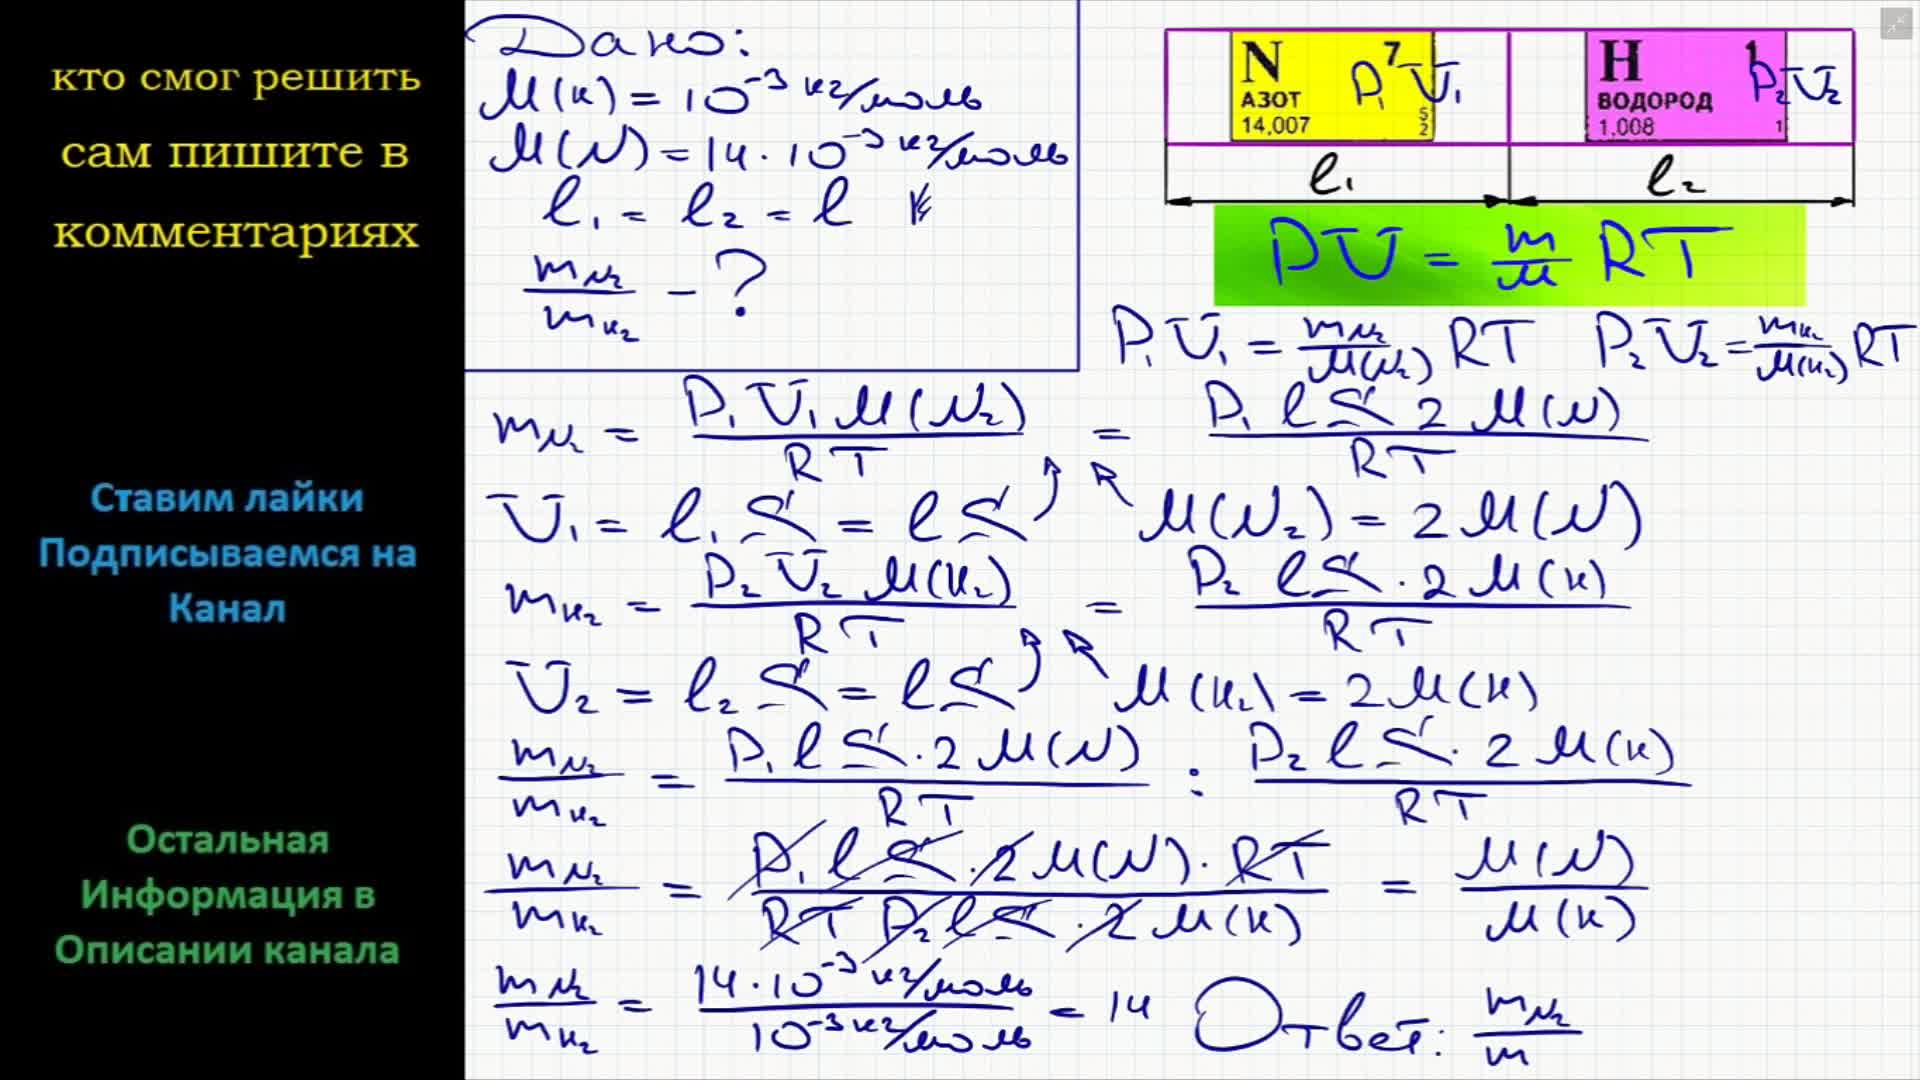 кто смог решить
сам пишите в
комментариях
Ставим лайки
Подписываемся на
Канал
Остальная
Информация в
Описании канала
Дано:
M(н) = 10⁻³ кг/моль
M(N) = 14·10⁻³ кг/моль
l₁ = l₂ = l
m_N₂/m_н₂ - ?
N 7 P₁ V₁
АЗОТ
14,007 5 2
H 1 P₂ V₂
ВОДОРОД
1,008 1
l₁ l₂
PV = m/M RT
P₁V₁ = m_N₂/M(N₂) RT P₂V₂ = m_н₂/M(н₂) RT
m_N₂ = P₁V₁M(N₂)/RT = P₁ l S 2 M(N)/RT
V₁ = l₁S = lS M(N₂) = 2M(N)
m_н₂ = P₂V₂M(н₂)/RT = P₂ l S·2 M(н)/RT
V₂ = l₂S = lS M(н₂) = 2M(н)
m_N₂/m_н₂ = P₁ l S·2 M(N)/RT : P₂ l S·2 M(н)/RT
m_N₂/m_н₂ = P₁ l S·2 M(N)·RT/RT P₂ l S·2 M(н) = M(N)/M(н)
m_N₂/m_н₂ = 14·10⁻³ кг/моль/10⁻³ кг/моль = 14 Ответ: m_N₂/m